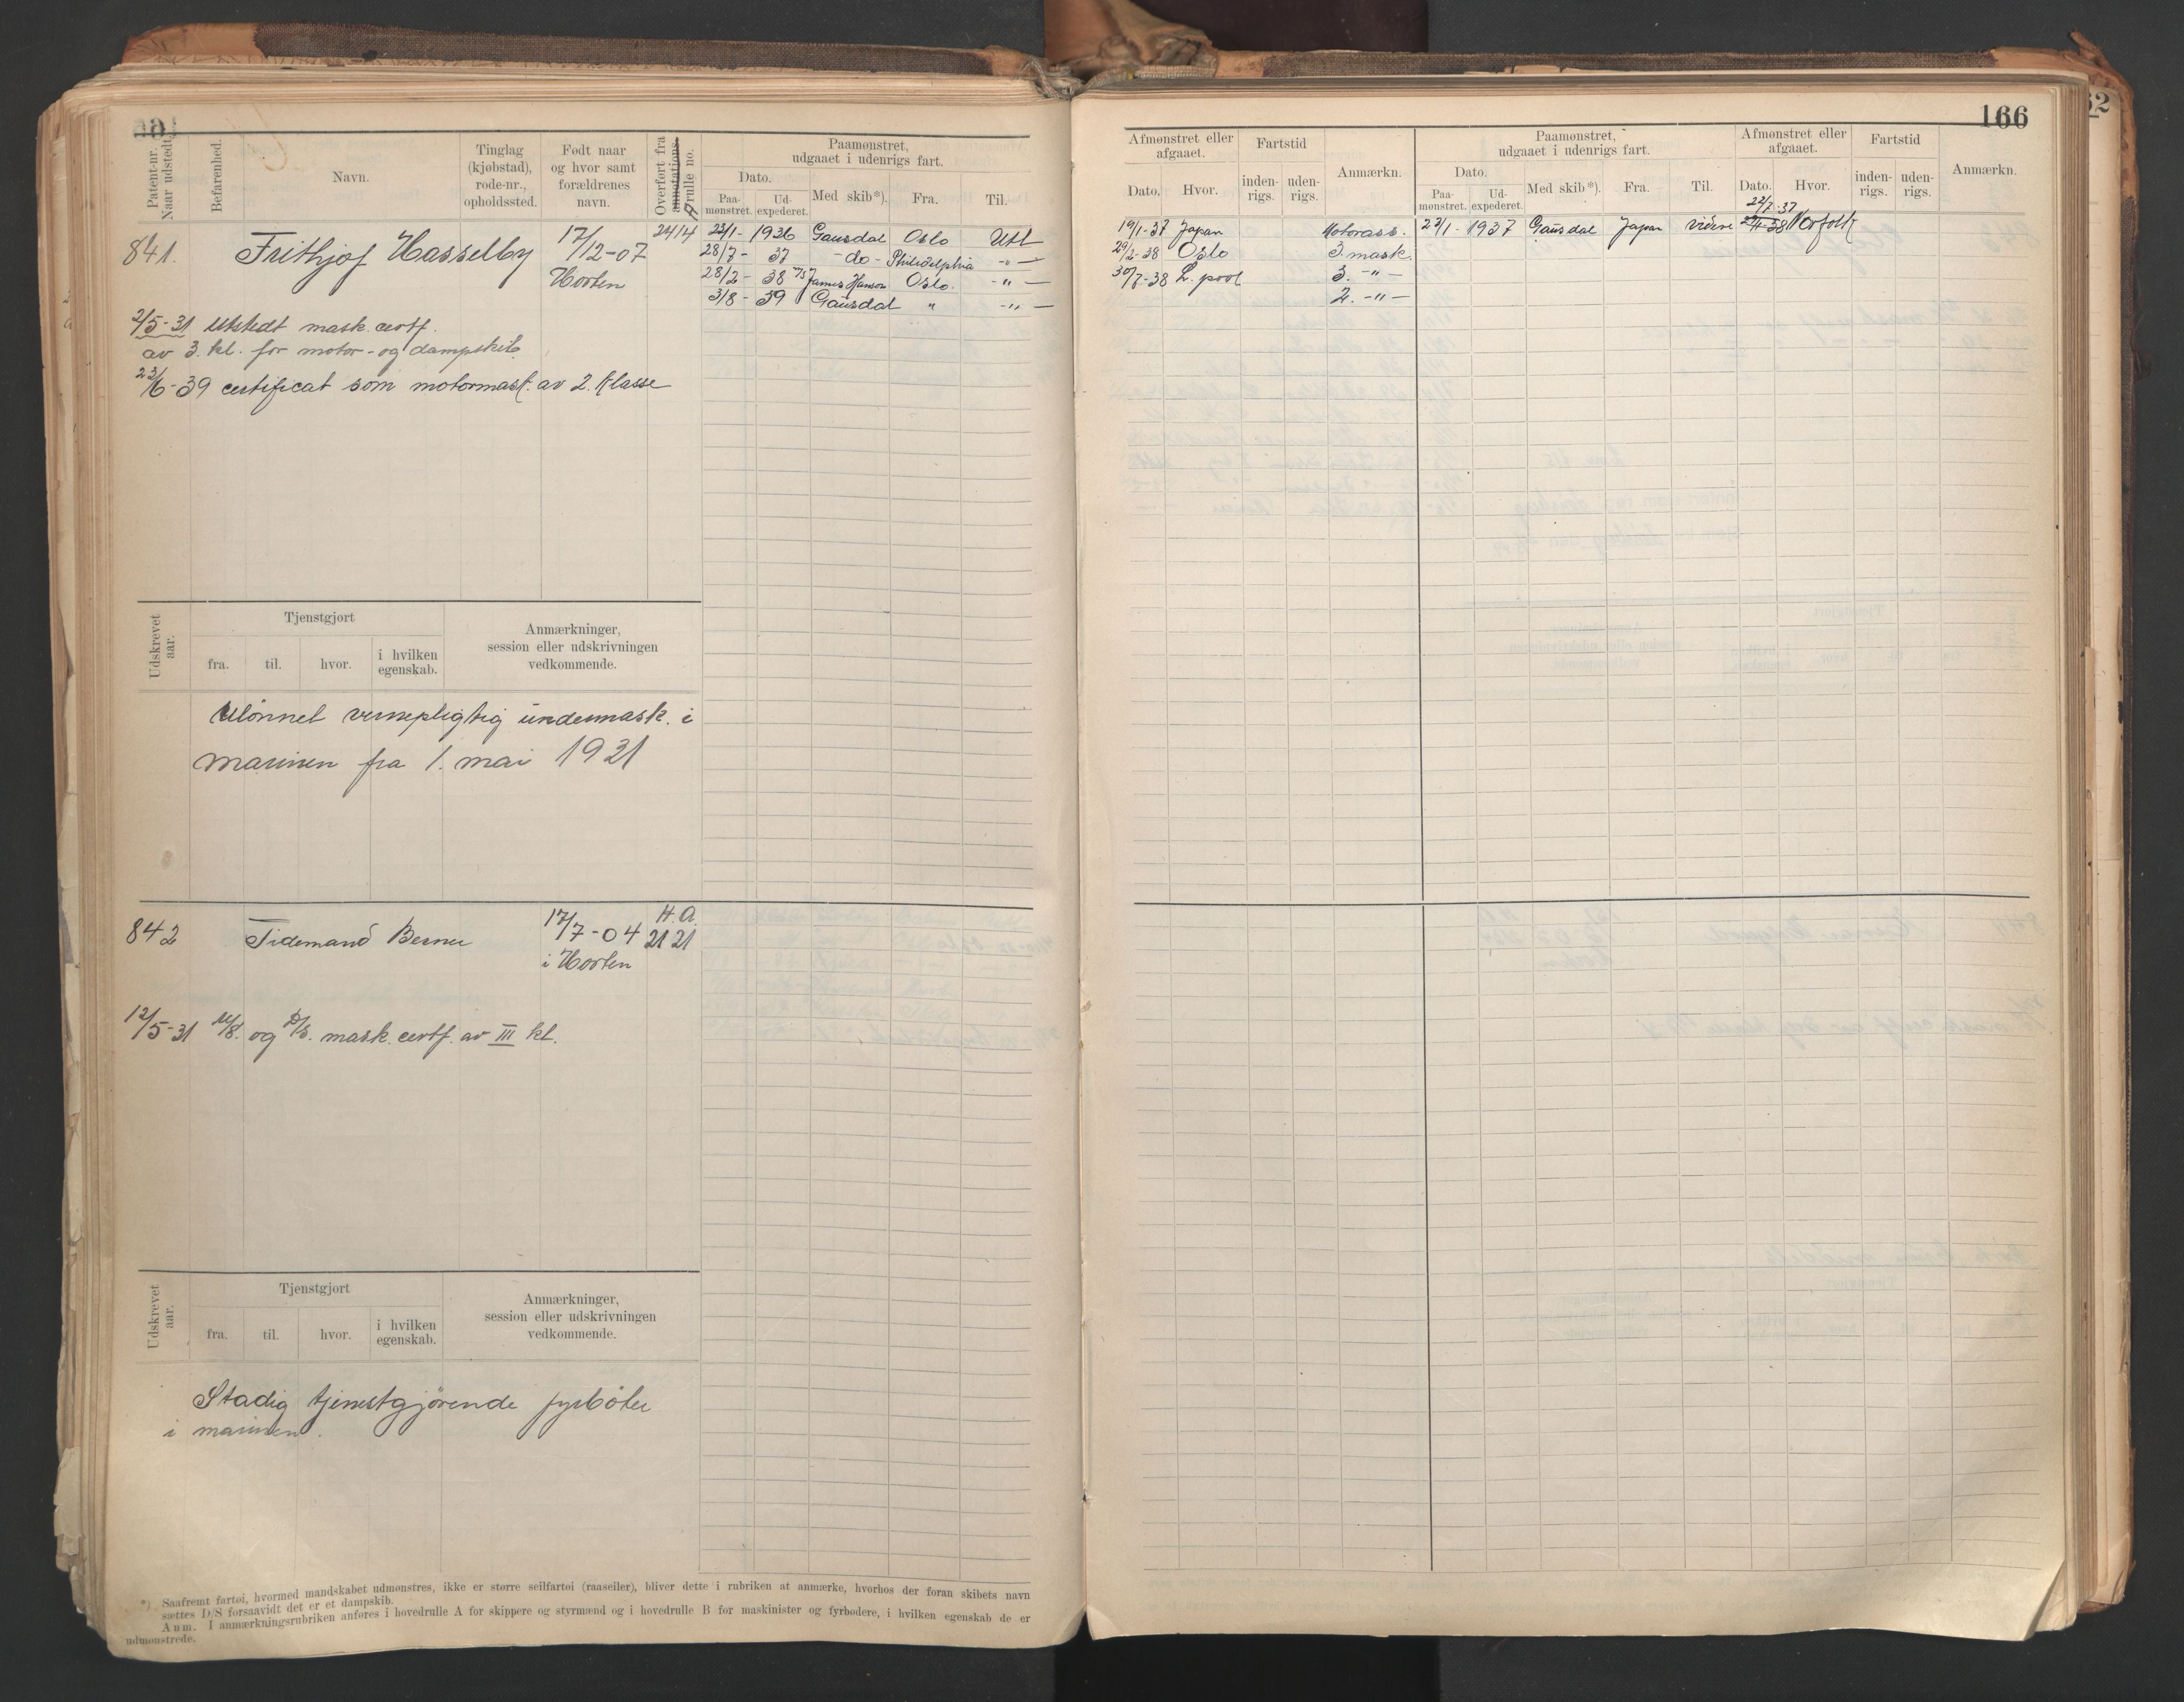 166
Patent-nr. Naar udstedt
Befarenhed.
Navn.
Tinglag (kjøbstad), rode-nr., opholdssted.
Født naar og hvor samt forældrenes navn.
Overført fra annotations- A rulle no.
Paamønstret, udgaaet i udenrigs fart.
Dato.
Paa-mønstret.
Ud-expederet.
Med skib*).
Fra.
Til.
841.
Frithjof Hasselby
17/12-07
Horten
2414
23/1- 1936 Gausdal Oslo Utl
28/7- 37 -do- Philidelphia -"-
28/2- 38 M/S James Hanson Oslo. -"-
3/8- 39 Gausdal " -"-
2/5-31 Utstedt mask. certf.
av 3. kl. for motor- og dampskib
23/6-39 certificat som motormask. av 2. klasse
Udskrevet aar.
Tjenstgjort
fra.
til.
hvor.
i hvilken egenskab.
Anmærkninger, session eller udskrivningen vedkommende.
Ulønnet vernepligtig undermask. i
marinen fra 1. mai 1931
842
Tidemand Berner
17/7-04
i Horten
H.A.
2121
12/5-31 M/S. og D/S. mask. certf. av III kl.
Udskrevet aar.
Tjenstgjort
fra.
til.
hvor.
i hvilken egenskab.
Anmærkninger, session eller udskrivningen vedkommende.
Stadig tjenestgjørende fyrbøter
i marinen.
*) Saafremt fartøi, hvormed mandskabet udmønstres, ikke er større seilfartøi (raaseiler), bliver dette i rubriken at anmærke, hvorhos der foran skibets navn
sættes D/S forsaavidt det er et dampskib.
Anm. I anmærkningsrubriken anføres i hovedrulle A for skippere og styrmænd og i hovedrulle B for maskinister og fyrbødere, i hvilken egenskab de er
udmønstrede.
Afmønstret eller afgaaet.
Dato.
Hvor.
Fartstid
inden-rigs.
uden-rigs.
Anmærkn.
Paamønstret, udgaaet i udenrigs fart.
Dato.
Paa-mønstret.
Ud-expederet.
Med skib*).
Fra.
Til.
Afmønstret eller afgaaet.
Dato.
Hvor.
Fartstid
inden-rigs.
uden-rigs.
Anmærkn.
22/7-37
19/1-37 Japan Motorass. 23/1- 1937 Gausdal Japan videre Norfolk
29/2-38 Oslo 3. mask.
30/7-38 L. pool 3. -"-
2. -"-